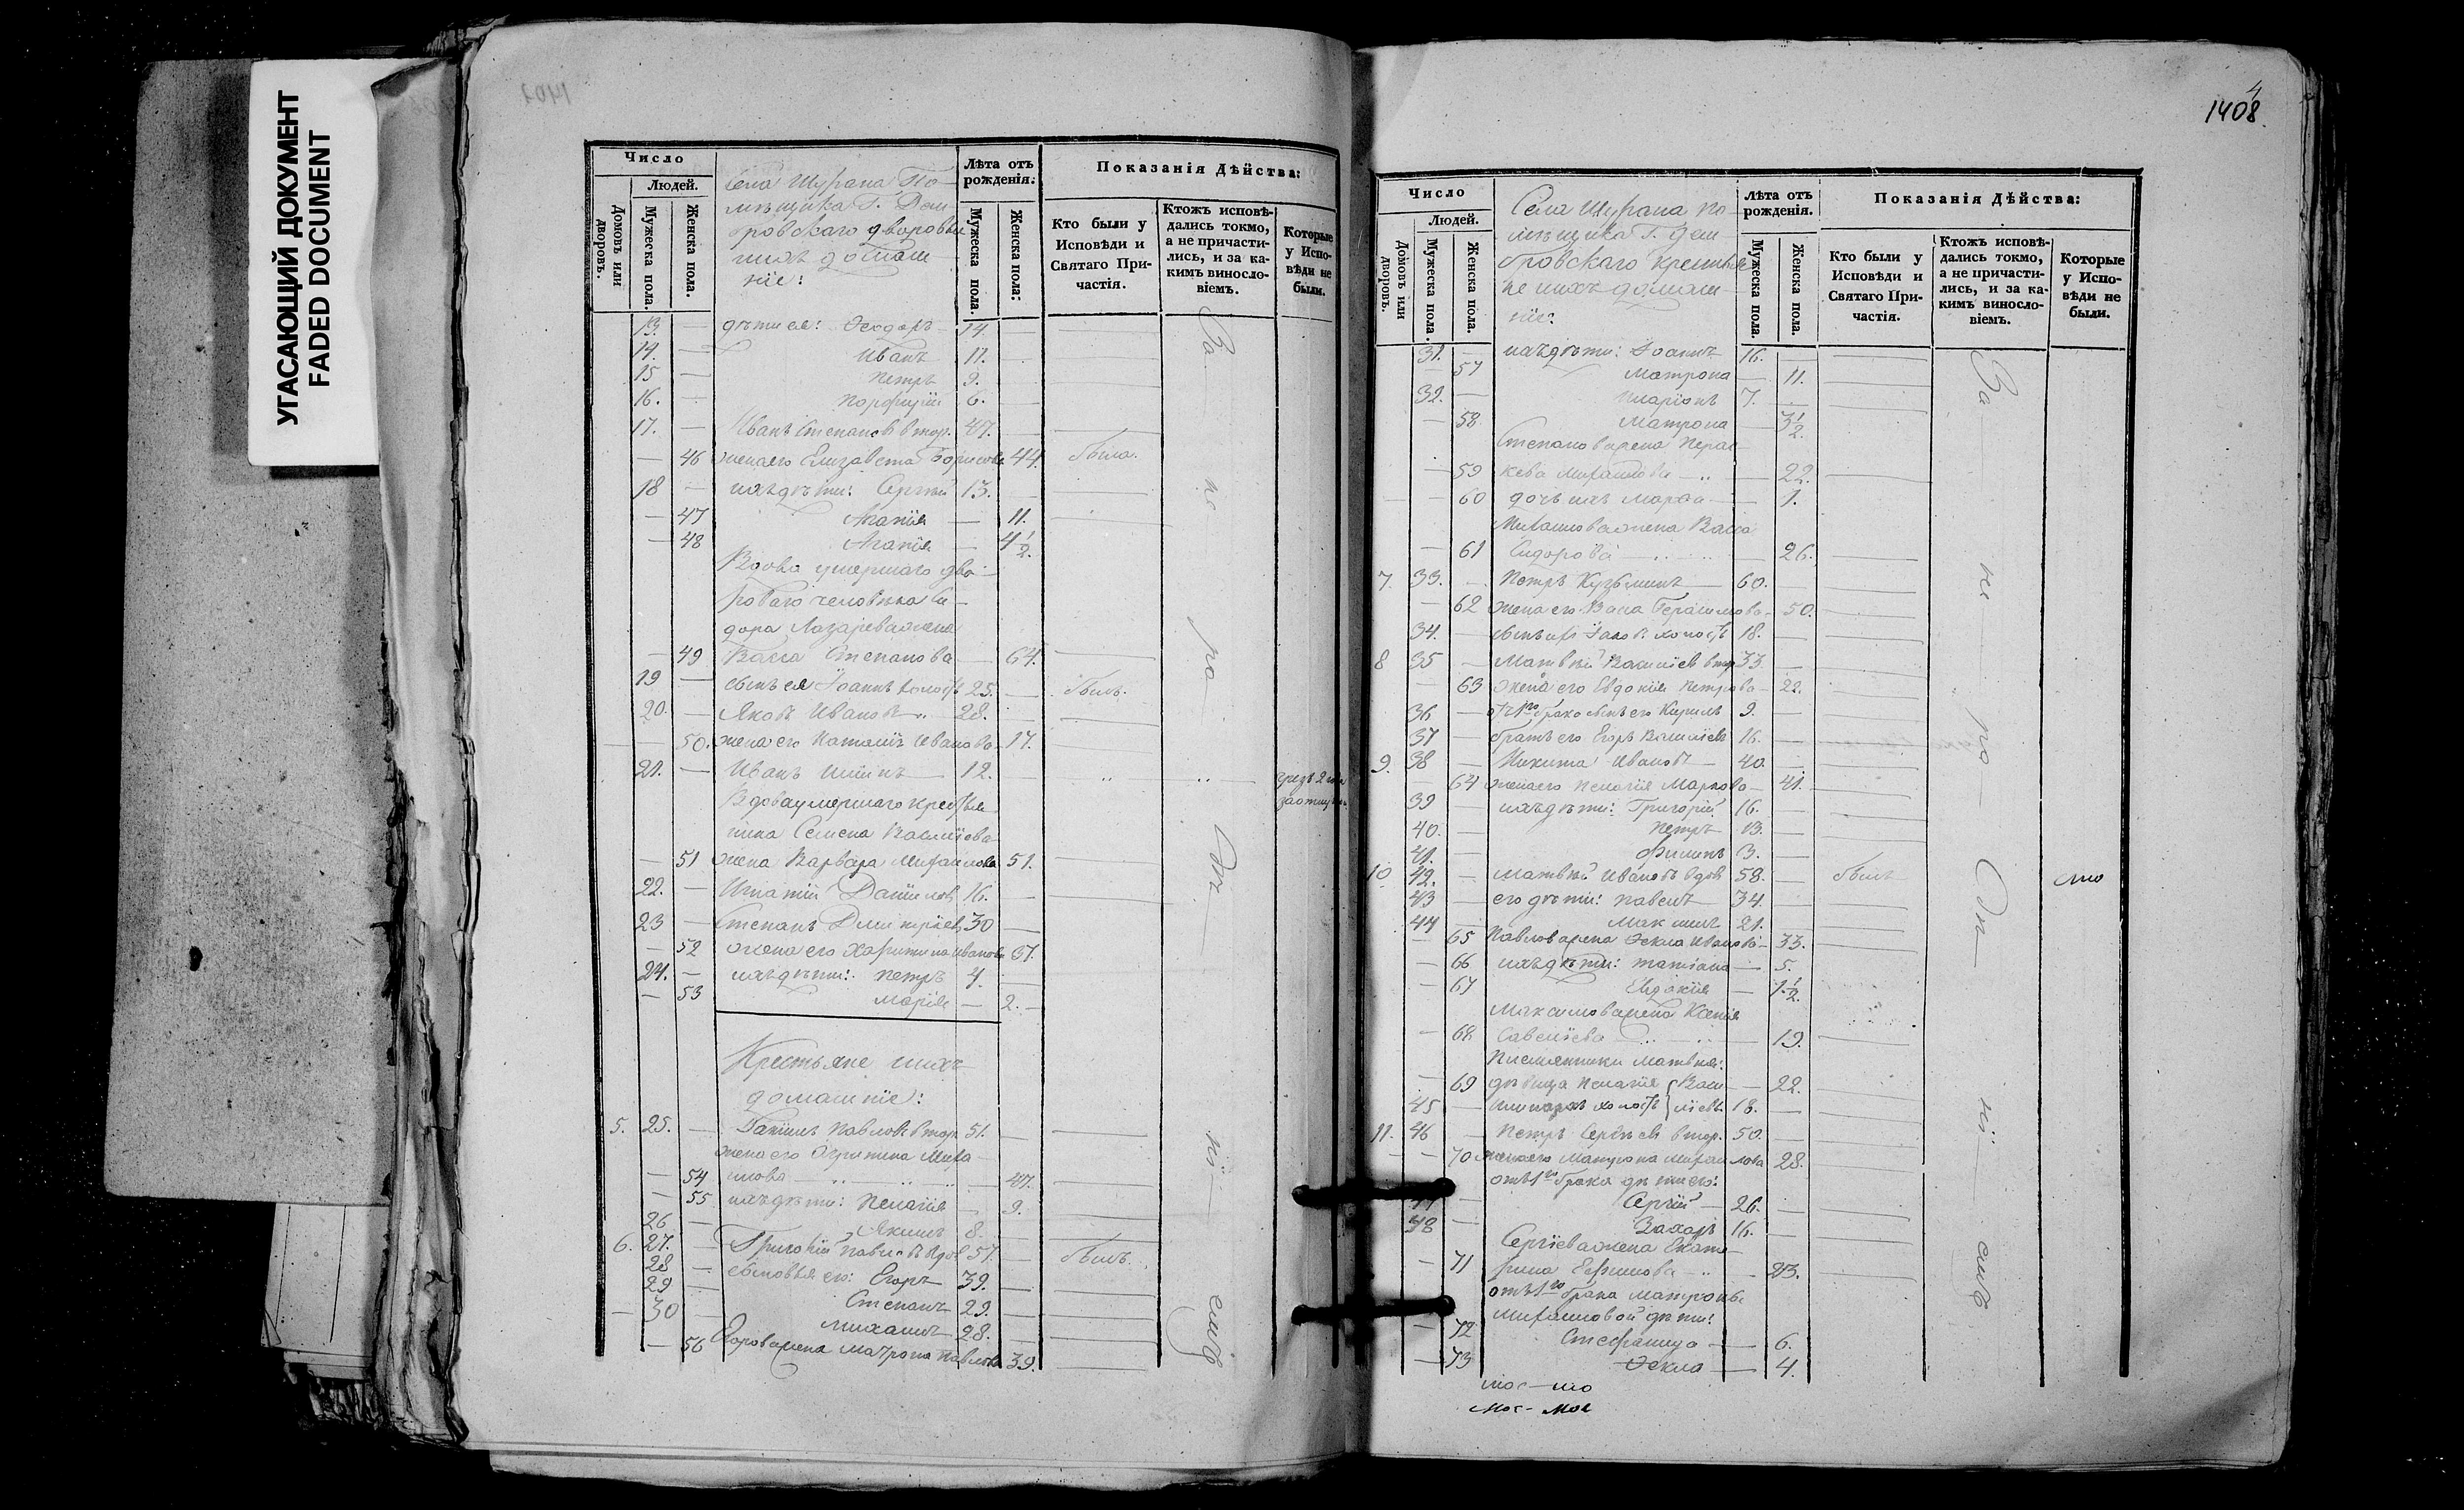 УГАСАЮЩИЙ ДОКУМЕНТ
FADED DOCUMENT
1407
Число
Людей.
Домовъ или дворовъ.
Мужеска пола.
Женска пола.
Села Шурана По-
мѣщика Г. Дем
бровскаго дворовые
нихъ домаш-
ніе:
Лѣта отъ рожденія:
Мужеска пола.
Женска пола:
Показанія Дѣйства:
Кто были у Исповѣди и Святаго При-частія.
Ктожъ исповѣ-дались токмо, а не причасти-лись, и за ка-кимъ винosло-віемъ.
Которые у Испо-вѣди не были.
13. — дѣти ея: Ѳеодоръ 14. —
14. — Иванъ 11. —
15 — Петръ 9. —
16. — Порфирій 6. —
17. — Иванъ Степановъ втор. 47. —
— 46 жена его Елизавета Борисова 44. была.
18 — ихъ дѣти: Сергѣй 13. —
— 47 Агапія — 11.
— 48 Агапія — 4 1/2.
Вдова умершаго дво-
роваго человѣка Си-
дора Лазарева жена
— 49 Васса Степанова — 64.
19 — сынъ ея Іоаннъ холостъ 25. — былъ.
20. — Яковъ Ивановъ 28. —
— 50. жена его Наталія Иванова 17.
21. — Иванъ 12. —
Вдова умершаго крестья
нина Семена Васильева
— 51 жена Варвара Михаилова 51.
22. — Игнатій Даниловъ 16. —
23 — Степанъ Димитріевъ 30 —
— 52 жена его Харитина Иванова 31.
24. — ихъ дѣти: Петръ 4. —
— 53 Марія — 2.
Крестьяне нихъ
домашніе:
5. 25. — Даніилъ Павловъ втор. 51. —
жена его Агрипина Миха-
— 54 илова — 47.
— 55 ихъ дѣти: Пелагія — 9.
26 — Якимъ 8. —
6. 27. — Григорій Павловъ вдов 57. — былъ.
28 — сыновья его: Егоръ 39. —
29 — Степанъ 29. —
30 — Михаилъ 28. —
— 56 Егорова жена Матрона Павлова 39.
За не ра дѣ ні емъ
1408
4
Число
Людей.
Домовъ или дворовъ.
Мужеска пола.
Женска пола.
Села Шурана По-
мѣщика Г. Дем
бровскаго крестья
не нихъ домаш-
ніе:
Лѣта отъ рожденія.
Мужеска пола.
Женска пола.
Показанія Дѣйства:
Кто были у Исповѣди и Святаго При-частія.
Ктожъ исповѣ-дались токмо, а не причасти-лись, и за ка-кимъ винosло-віемъ.
Которые у Испо-вѣди не были.
31. — ихъ дѣти: Іоаннъ 16. —
— 57 Матрона — 11.
32. — Иларіонъ 7. —
— 58 Матрона — 3 1/2.
Степанова жена Парас-
— 59 кева Михаилова — 22.
— 60 дочь ихъ Марѳа — 1.
Михаилова жена Васса
— 61 Сидорова — 26.
7. 33. — Петръ Кузьминъ 60. —
— 62 жена его Васса Герасимова — 50.
34. — сынъ ихъ Іаковъ холостъ 18. —
8 35 — Матвѣй Васильевъ втор 33 —
— 63 жена его Евдокія Петрова — 22.
36 — отъ 1го брака сынъ его Кирилъ 9. —
37 — братъ его Егоръ Васильевъ 16. —
9. 38 — Никита Ивановъ 40. —
— 64 жена его Пелагія Маркова — 41.
39 — ихъ дѣти: Григорій 16. —
40. — Петръ 13. —
41. — Филипъ 3. —
10 42. — Матвѣй Ивановъ вдов 58. — былъ
43 — его дѣти: Павелъ 34. —
44 — Максимъ 21. —
— 65 Павлова жена Ѳекла Иванова — 33.
— 66 ихъ дѣти: Татіана — 5.
— 67 Евдокія — 1 1/2.
Максимова жена Ксенія
— 68 Савельева — 19.
Племянники Матвѣя:
— 69 дѣвица Пелагія } Васи- — 22.
45 — холостъ } льевы 18. —
11. 46 — Петръ Сергѣевъ втор. 50. —
— 70 жена его Матрона Михаилова 28.
отъ 1го брака дѣти его:
47 — Сергій 26. —
48 — Захаръ 16. —
Сергіева жена Екате-
— 71 рина Ефимова — 23.
отъ 1го брака Матроны
Михаиловой дѣти:
— 72 Стефанида — 6.
— 73 Ѳекла — 4.
За не ра дѣ ні емъ